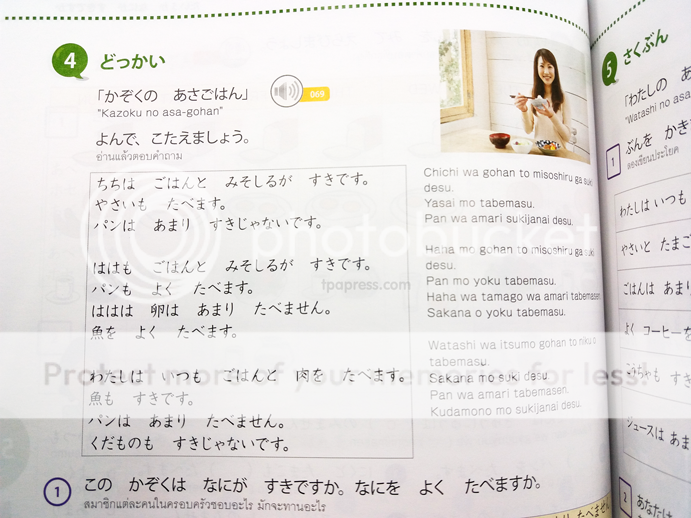 4 どっかい
「かぞくの あさごはん」
069
"Kazoku no asa-gohan"
よんで、こたえましょう。
อ่านแล้วตอบคำถาม
ちちは ごはんと みそしるが すきです。
やさいも たべます。
パンは あまり すきじゃないです。
ははも ごはんと みそしるが すきです。
パンも よく たべます。
ははは 卵は あまり たべません。
魚を よく たべます。
わたしは いつも ごはんと 肉を たべます。
魚も すきです。
パンは あまり たべません。
くだものも すきじゃないです。
Chichi wa gohan to misoshiru ga suki
desu.
Yasai mo tabemasu.
Pan wa amari sukijanai desu.
Hana mo gohan to misoshiru ga suki
desu.
Pan mo yoku tabemasu.
Haha wa tamago wa amari tabemasen.
Sakana o yoku tabemasu.
Watashi wa itsumo gohan to niku o
tabemasu.
Sakana mo suki desu.
Pan wa amari tabemasen.
Kudamono mo sukijanai desu.
1 この かぞくは なにが すきですか。なにを よく たべますか。
สมาชิกแต่ละคนในครอบครัวชอบอะไร มักจะทานอะไร
5 さくぶん
「わたしの あ
"Watashi no asa
1 ぶんを かき
ลองเขียนประโยค
わたしは いつも
やさいと たまご
ごはんは あまり
よく コーヒーを
こうちゃも すき
ジュースは あま
2 あなたは
photobucket
fpapress.com
Protect more of your memories for less!